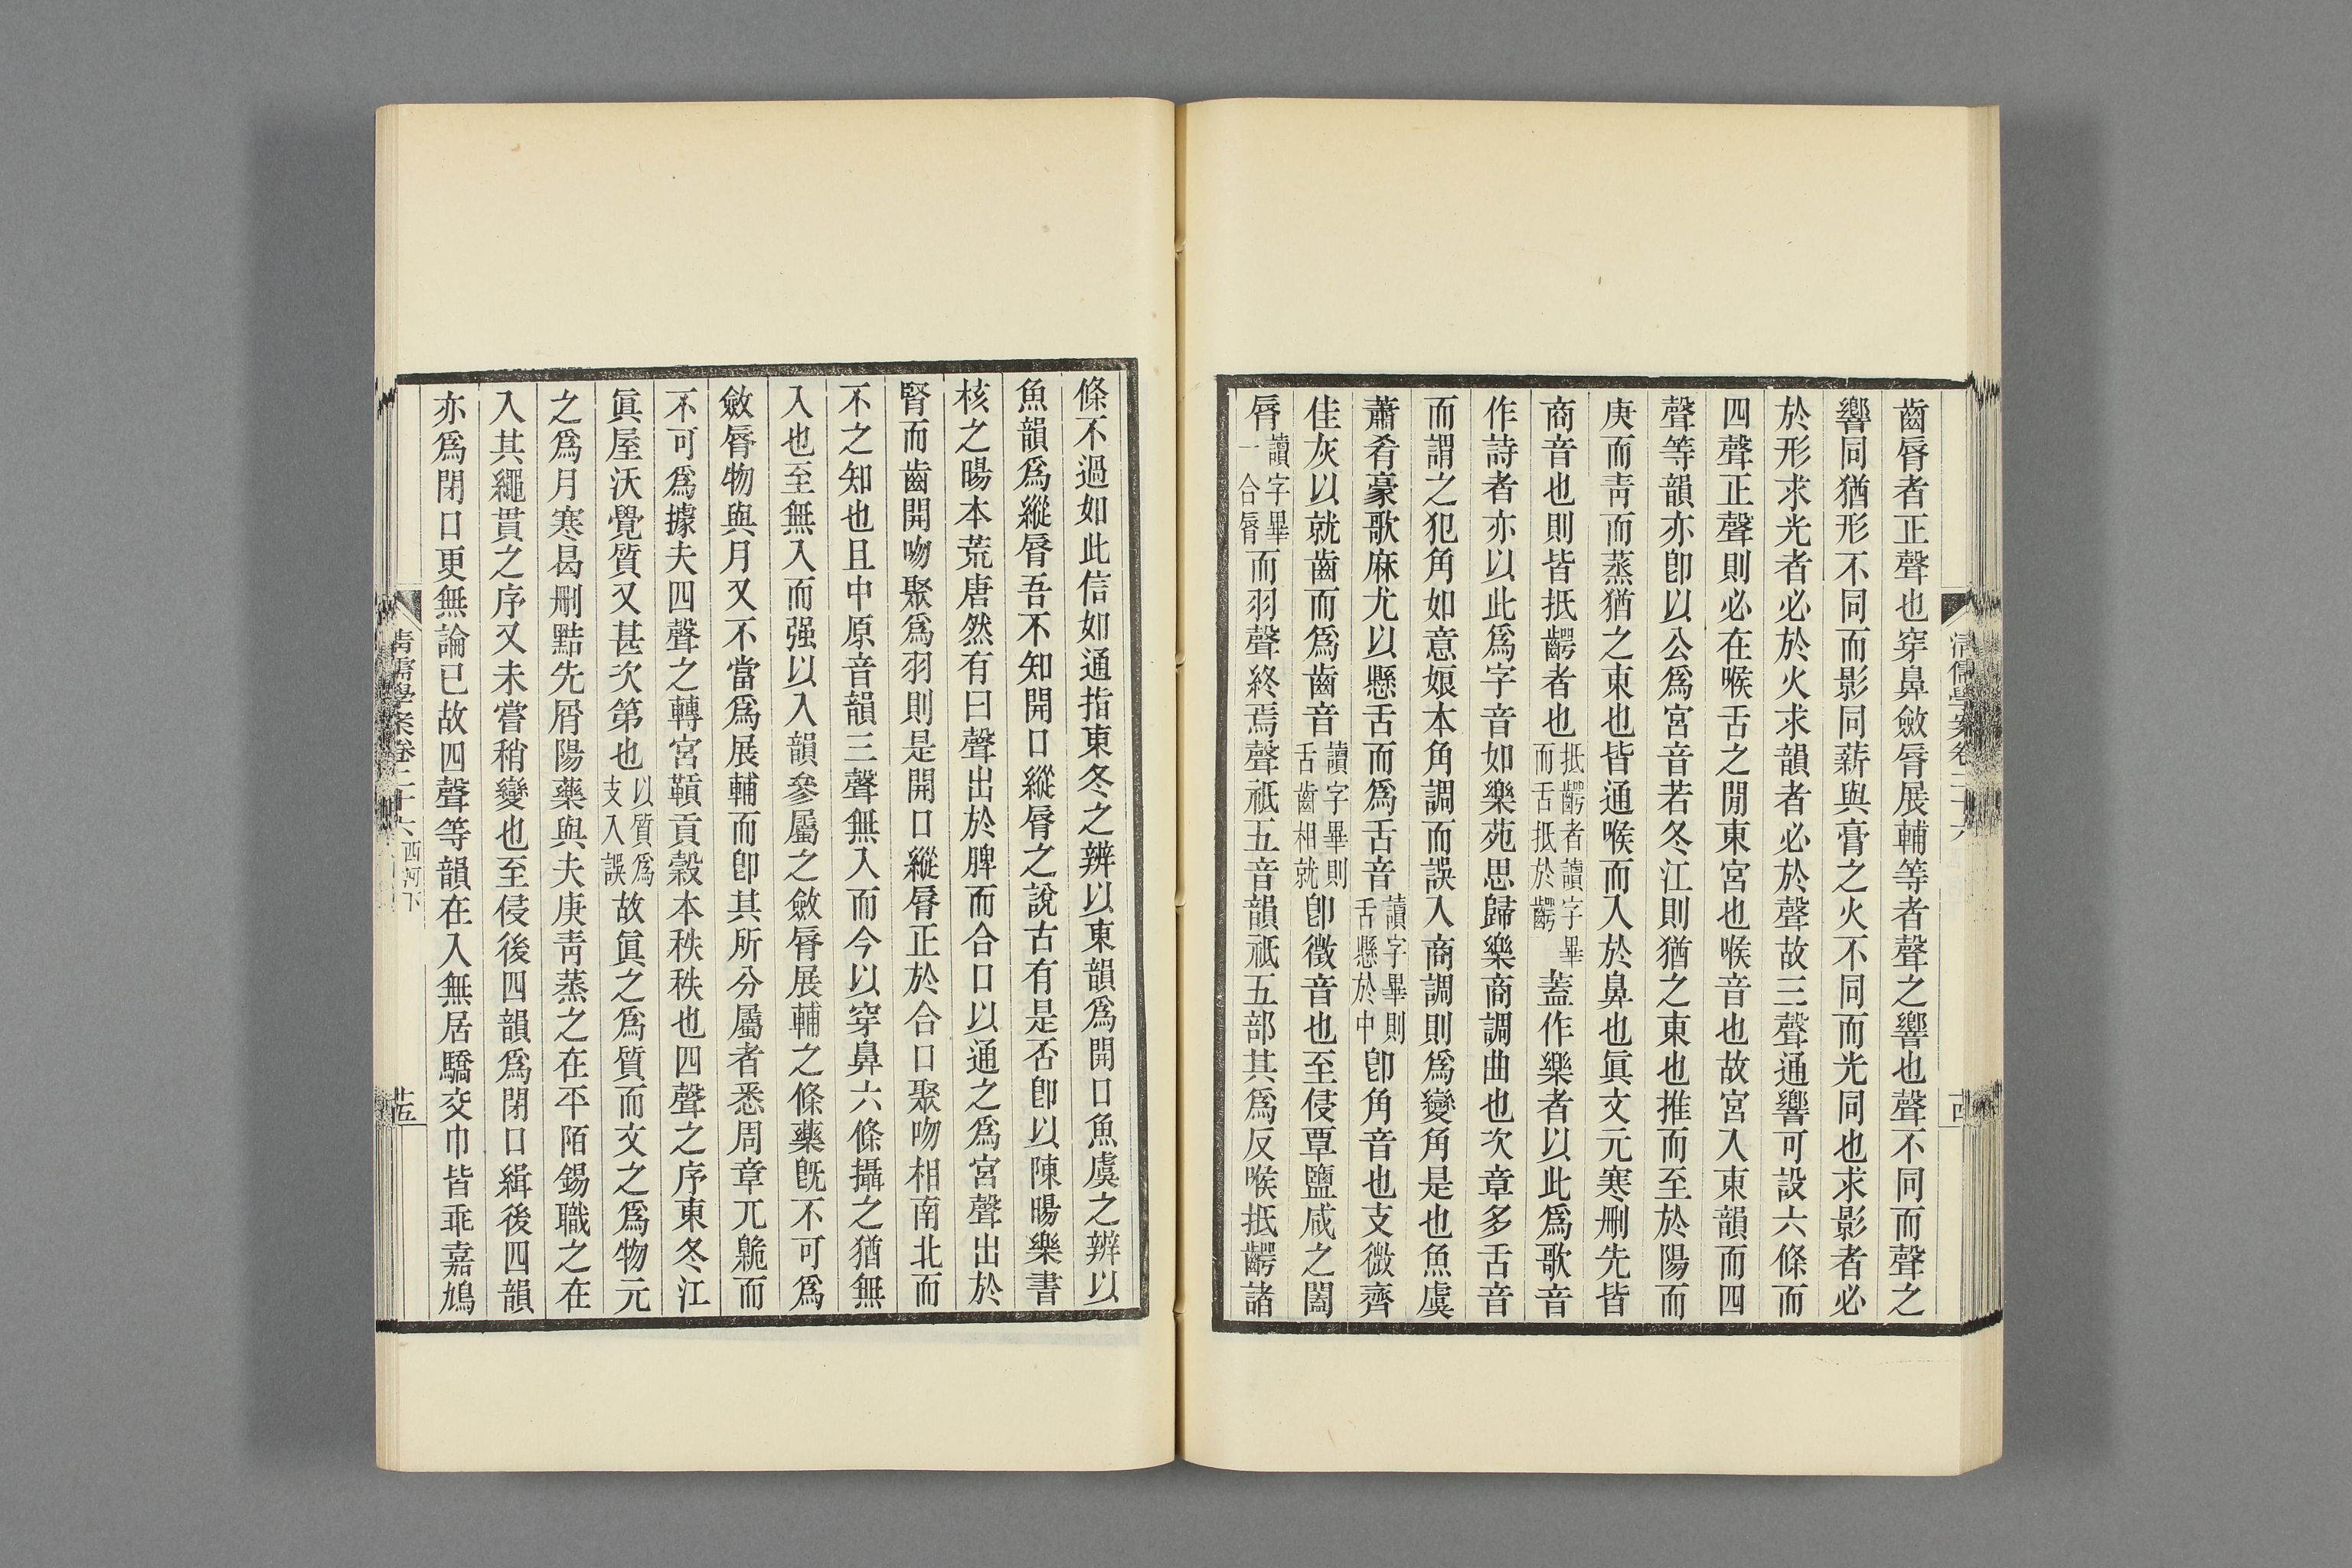 齒脣者正聲也穿鼻斂脣展輔等者聲之響也聲不同而聲之
響同猶形不同而影同薪與膏之火不同而光同也求影者必
於形求光者必於火求韻者必於聲故三聲通響可設六條而
四聲正聲則必在喉舌之閒東宮也喉音也故宮入東韻而四
聲等韻亦卽以公爲宮音若冬江則猶之東也推而至於陽而
庚而靑而蒸猶之東也皆通喉而入於鼻也眞文元寒刪先皆
商音也則皆抵齶者也抵齶者讀字畢而舌抵於齶蓋作樂者以此爲歌音
作詩者亦以此爲字音如樂苑思歸樂商調曲也次章多舌音
而謂之犯角如意娘本角調而誤入商調則爲變角是也魚虞
蕭肴豪歌麻尤以懸舌而爲舌音讀字畢則舌懸於中卽角音也支微齊
佳灰以就齒而爲齒音讀字畢則舌齒相就卽徵音也至侵覃鹽咸之闔
脣讀字畢一合脣而羽聲終焉聲祗五音韻祗五部其爲反喉抵齶諸
清儒學案卷二十六
古
條不過如此信如通指東冬之辨以東韻爲開口魚虞之辨以
魚韻爲縱脣吾不知開口縱脣之說古有是否卽以陳暘樂書
核之暘本荒唐然有曰聲出於脾而合口以通之爲宮聲出於
腎而齒開吻聚爲羽則是開口縱脣正於合口聚吻相南北而
不之知也且中原音韻三聲無入而今以穿鼻六條攝之猶無
入也至無入而强以入韻參屬之斂脣展輔之條藥旣不可爲
斂脣物與月又不當爲展輔而卽其所分屬者悉周章兀臲而
不可爲據夫四聲之轉宮𩐠貢穀本秩秩也四聲之序東冬江
眞屋沃覺質又甚次第也以質爲支入誤故眞之爲質而文之爲物元
之爲月寒曷刪黠先屑陽藥與夫庚靑蒸之在平陌錫職之在
入其繩貫之序又未嘗稍變也至侵後四韻爲閉口緝後四韻
亦爲閉口更無論已故四聲等韻在入無居驕交巾皆乖嘉鳩
清儒學案卷二十六 西河下